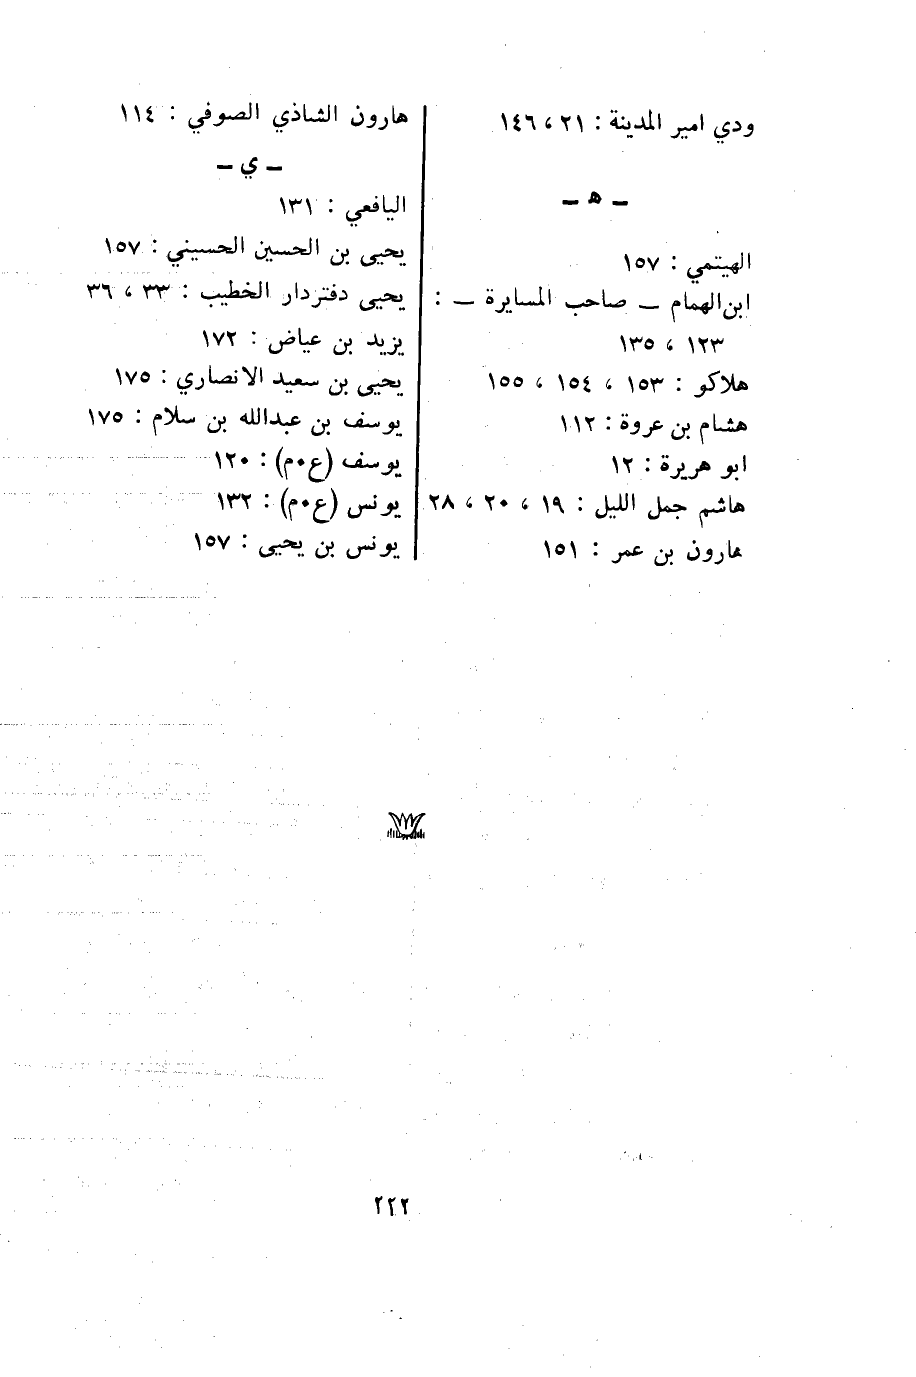 ودي امير المدينة : ٢١ ، ١٤٦
ـ ه ـ
الهيتمي : ١٥٧
ابن الهمام ـ صاحب المسايرة ـ :
١٢٣ ، ١٣٥
هلاكو : ١٥٣ ، ١٥٤ ، ١٥٥
هشام بن عروة : ١١٢
ابو هريرة : ١٢
هاشم جمل الليل : ١٩ ، ٢٠ ، ٢٨
هارون بن عمر : ١٥١
هارون الشاذي الصوفي : ١١٤
ـ ي ـ
اليافعي : ١٣١
يحيى بن الحسين الحسيني : ١٥٧
يحيى دفتردار الخطيب : ٣٣ ، ٣٦
يزيد بن عياض : ١٧٢
يحيى بن سعيد الانصاري : ١٧٥
يوسف بن عبدالله بن سلام : ١٧٥
يوسف (ع٠م) : ١٢٠
يونس (ع٠م) : ١٣٢
يونس بن يحيى : ١٥٧
٢٢٢